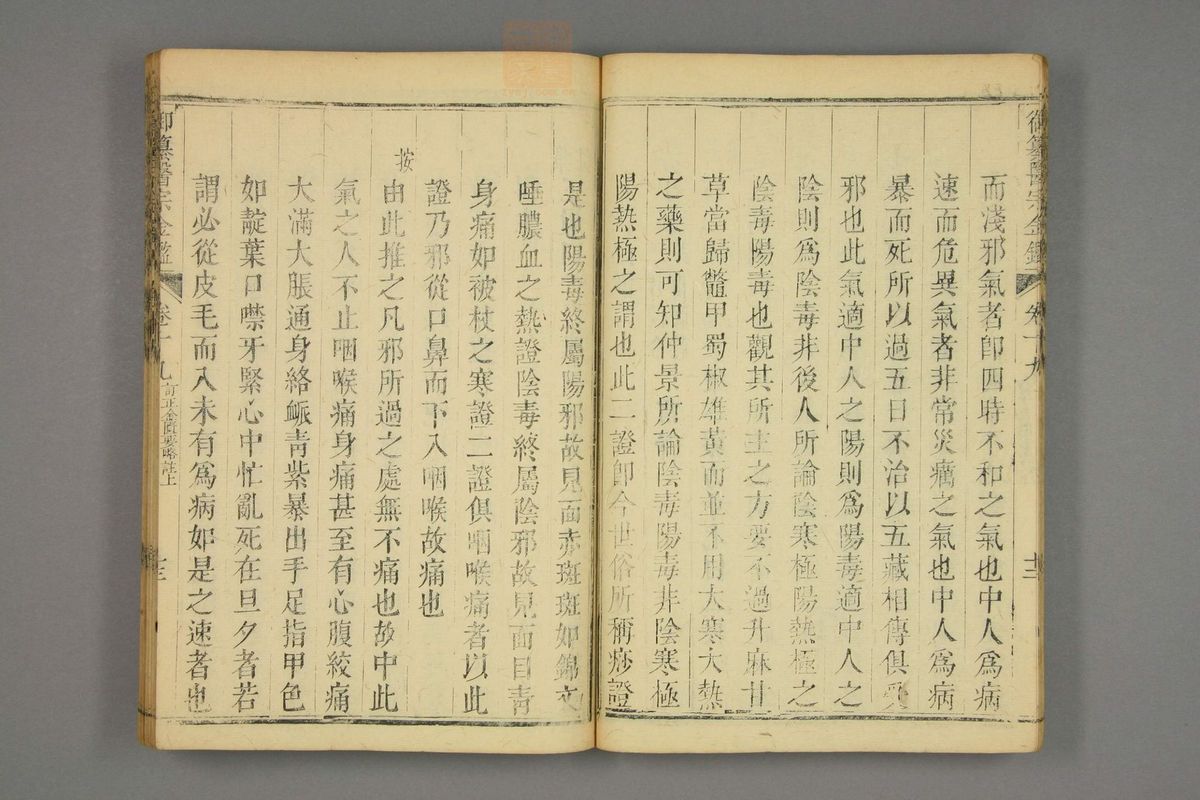 御纂醫宗金鑑 卷十九 十二
而淺邪氣者卽四時不和之氣也中人爲病
速而危異氣者非常災癘之氣也中人爲病
暴而死所以過五日不治以五藏相傳俱受
邪也此氣適中人之陽則爲陽毒適中人之
陰則爲陰毒非後人所論陰寒極陽熱極之
陰毒陽毒也觀其所主之方要不過升麻甘
草當歸鼈甲蜀椒雄黃而並不用大寒大熱
之藥則可知仲景所論陰毒陽毒非陰寒極
陽熱極之謂也此二證卽今世俗所稱痧證
是也陽毒終屬陽邪故見面赤斑斑如錦文
唾膿血之熱證陰毒終屬陰邪故見面目青
身痛如被杖之寒證二證俱咽喉痛者以此
證乃邪從口鼻而下入咽喉故痛也
按
由此推之凡邪所過之處無不痛也故中此
氣之人不止咽喉痛身痛甚至有心腹絞痛
大滿大脹通身絡脈青紫暴出手足指甲色
如靛葉口噤牙緊心中忙亂死在旦夕者若
謂必從皮毛而入未有爲病如是之速者也
御纂醫宗金鑑 卷十九 訂正金匱要略註上